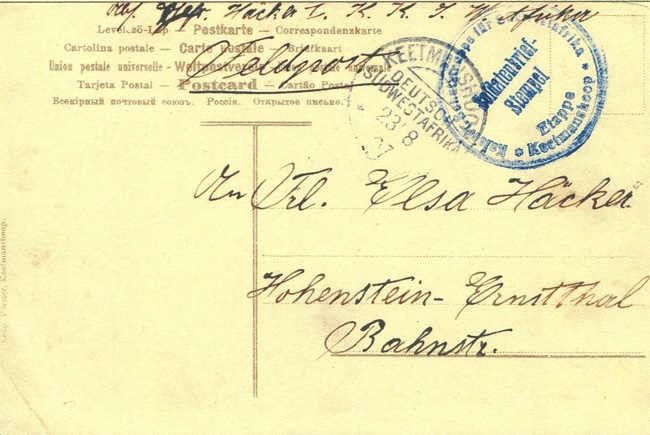 Abs. Gefr. Häcker I. K. K. I. Westfuhr
Levelező-Lap — Postkarte — Correspondenzkarte
Cartolina postale — Carte postale — Briefkaart
Union postale universelle — Weltpostverein —
Feldpost
Tarjeta Postal — Postcard — Cartão Postal
Всемірный почтовый союзъ. Россія. Открытое письмо.
KEETMANSHOOP
DEUTSCH
SÜDWESTAFRIKA
23 8
07
für Südwestafrika
Soldatenbrief-
Stempel
Etappe
Keetmanshoop
An Frl. Elsa Häcker
Hohenstein-Ernstthal
Bahnstr.
Keetmanshoop.